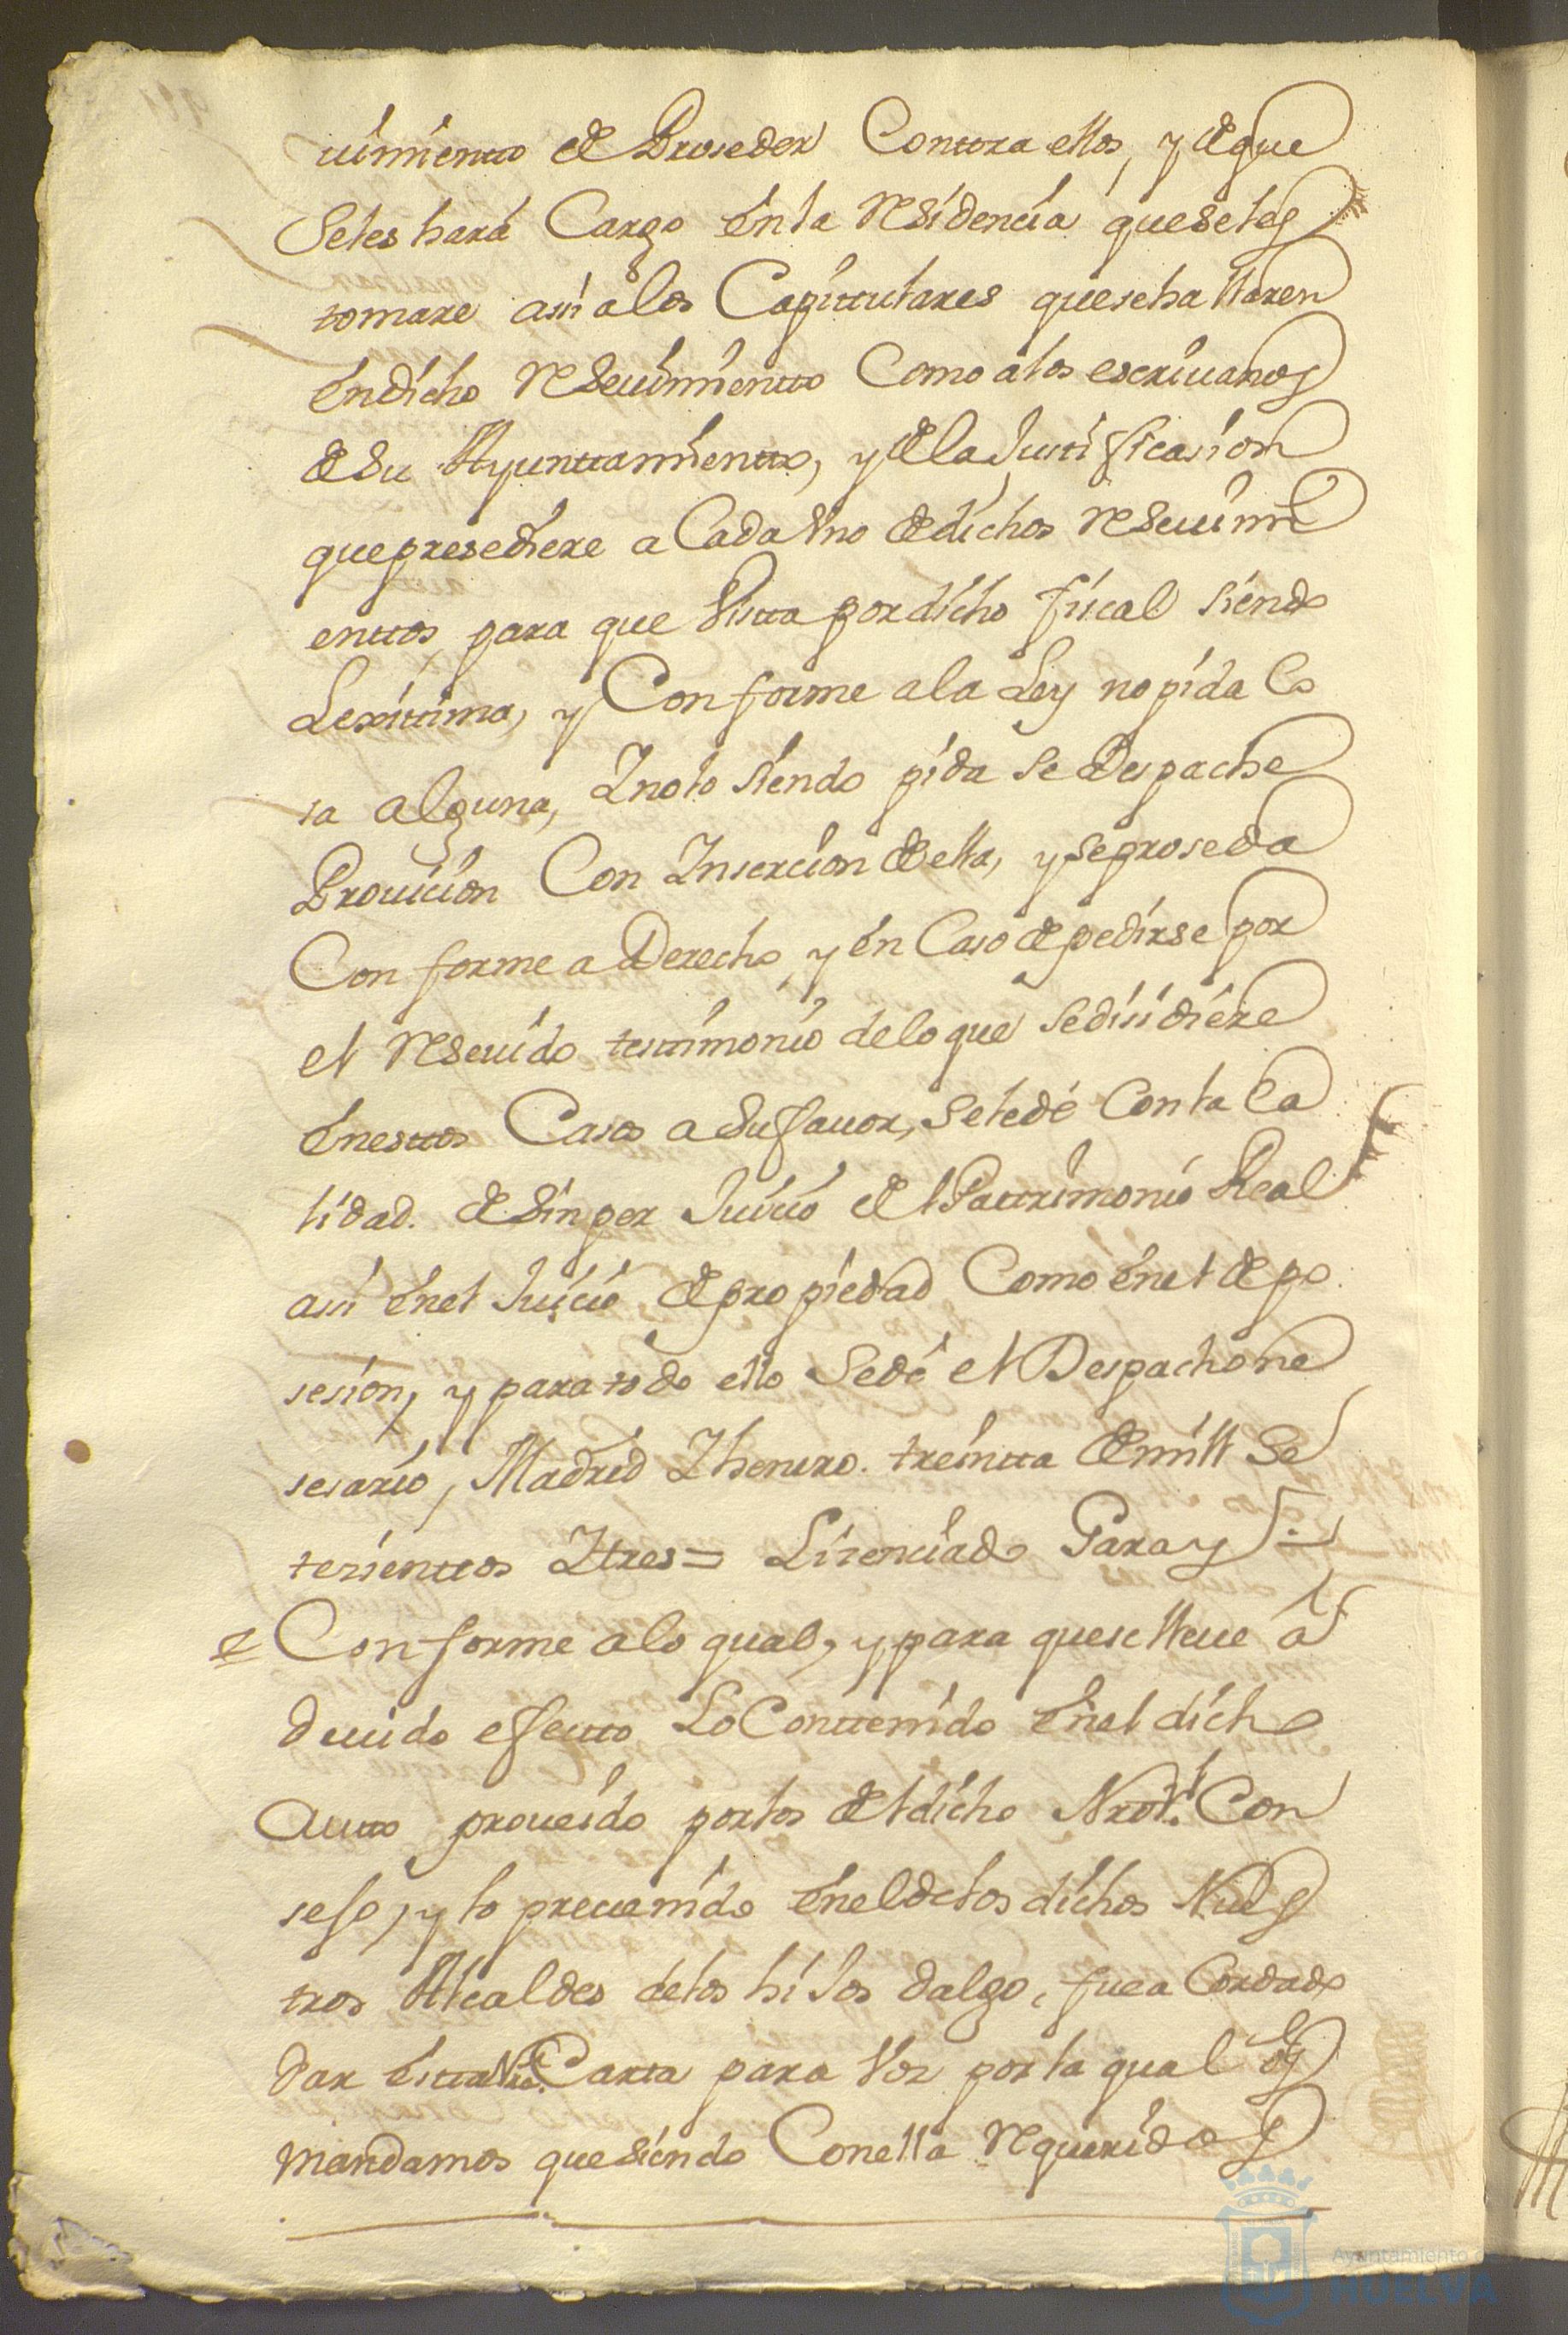 uimiento de Proseder Contra ellos, y de que
Seles hará Cargo en la Residencia que se les
tomare asi a los Capitulares que se hallaren
en dicho Resevimientto Como a los escriuanos
de su Ayunttamientto, y de la Justificasion
que presediere a Cada Vno de dichos Reseuimi
enttos, para que Vistta por dicho fiscal siendo
Lexittima, y Conforme a la Ley no pida Co
sa alguna, Y no lo siendo pida se Despache
Prouicion Con Ynsercion de ella, y se proseda
Conforme a Derecho, y en Caso de pedirse por
el Reseuido testtimonio de lo que se disidiere
en esttos Casos a su fauor, se le dé Con la Ca
lidad de sin per Juicio del Pattrimonio Real
asi en el Juicio de propiedad Como en el de po
sesion, y para todo ello se dé el Despacho ne
sesario, Madrid Y henero treintta de mill Se
tesienttos Y tres = Lisenciado Paray
Conforme a lo qual, y para que se lleue a
deuido efectto Lo Conttenido en el dicho
Autto proueido por los del dicho Nro. Con
sejo, y lo preuenido en el de los dichos Nues
tros Alcaldes de los hijos dalgo, fue a Cordado
dar estta Nra. Carta para Vos por la qual os
mandamos que siendo Con ella Requeridos
Ayuntamiento
HUELVA